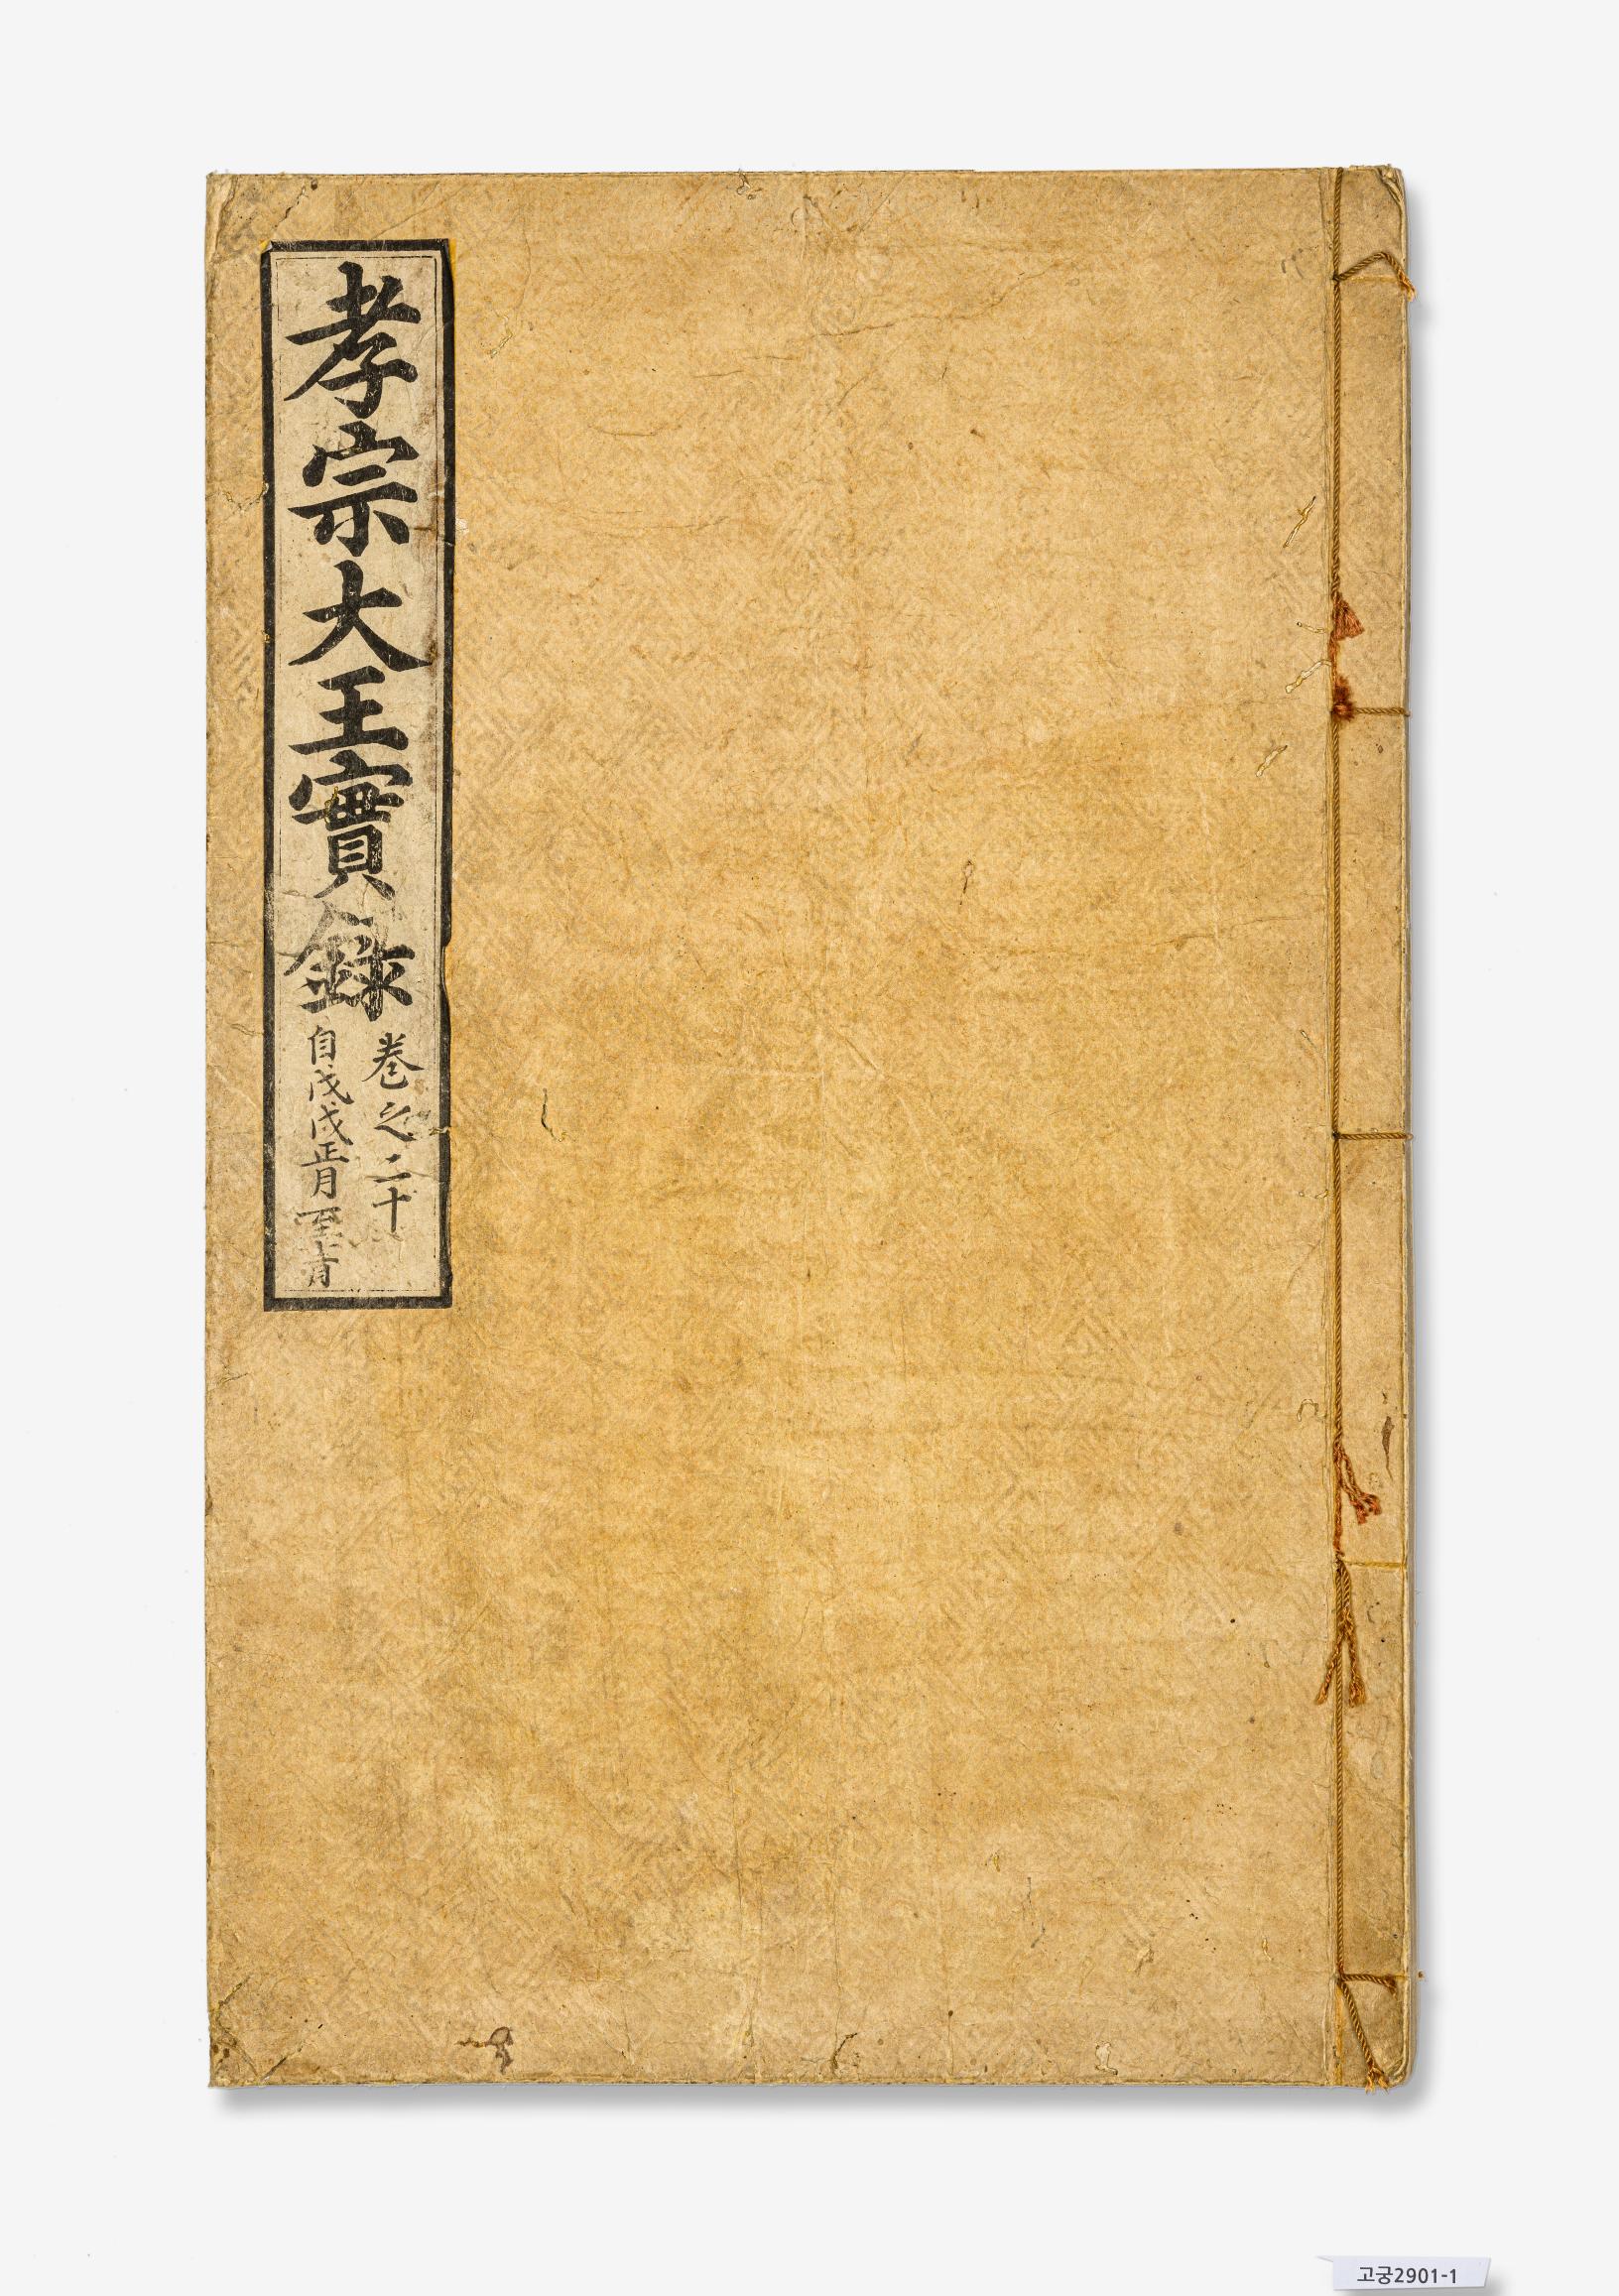 孝宗大王實錄
卷之二十
自戊戌正月至十二月
고궁2901-1